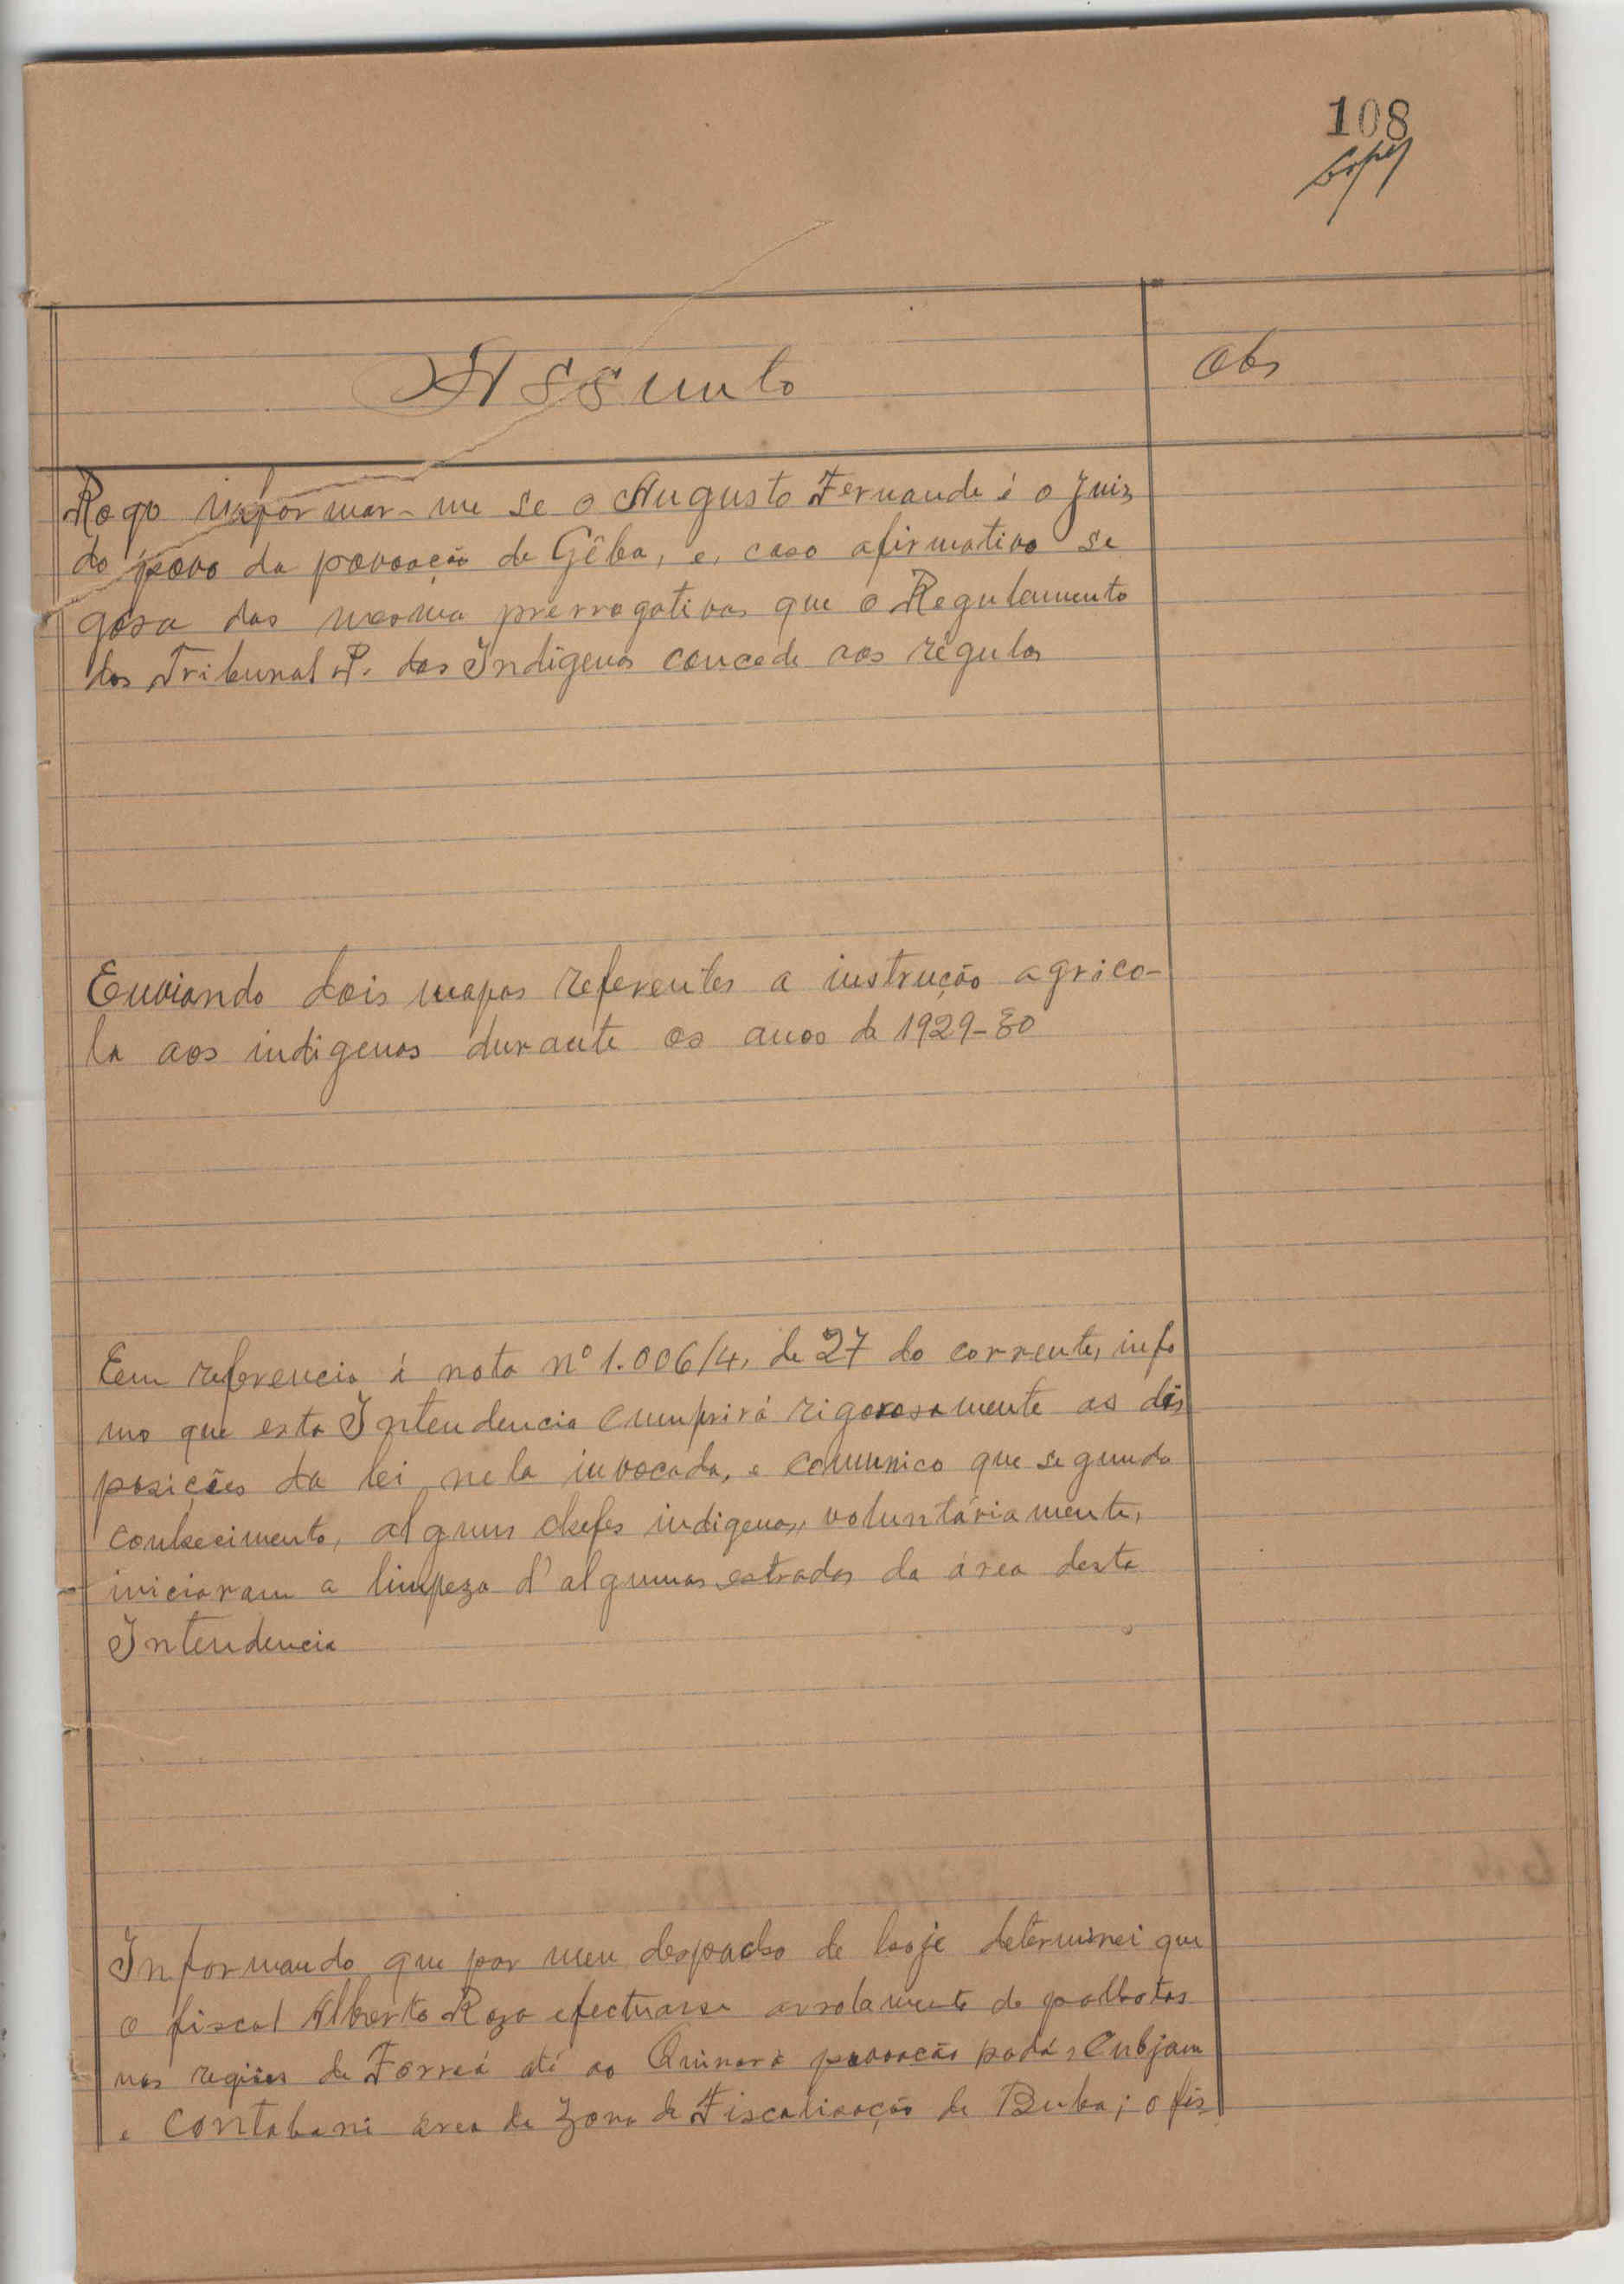 108
Assunto
Obs
Rogo informar-me se o Augusto Fernande é o Juiz
do povo da povoação de Gêba, e, caso afirmativo se
gosa das mesma prerrogativas que o Regulamento
dos Tribunal P. dos Indigenas concede aos régulos
Enviando dois mapas referentes a instrução agrico-
la aos indigenas durante os anos de 1929-30
Em referencia á nota nº 1.006/4, de 27 do corrente, info
mo que esta Intendencia cumprirá rigorosamente as dis
posições da lei nela invocada, e comunico que segundo
conhecimento, alguns chefes indigenas, voluntáriamente,
iniciaram a limpeza d'algumas estradas da área desta
Intendencia
Informando que por meu despacho de hoje determinei que
o fiscal Alberto Roza efectuasse arrolamento de palhotas
nas regiões de Forreá até ao Quinará povoação Cubjam
e Contabani área da Zona de Fiscalisação de Buba; o fis